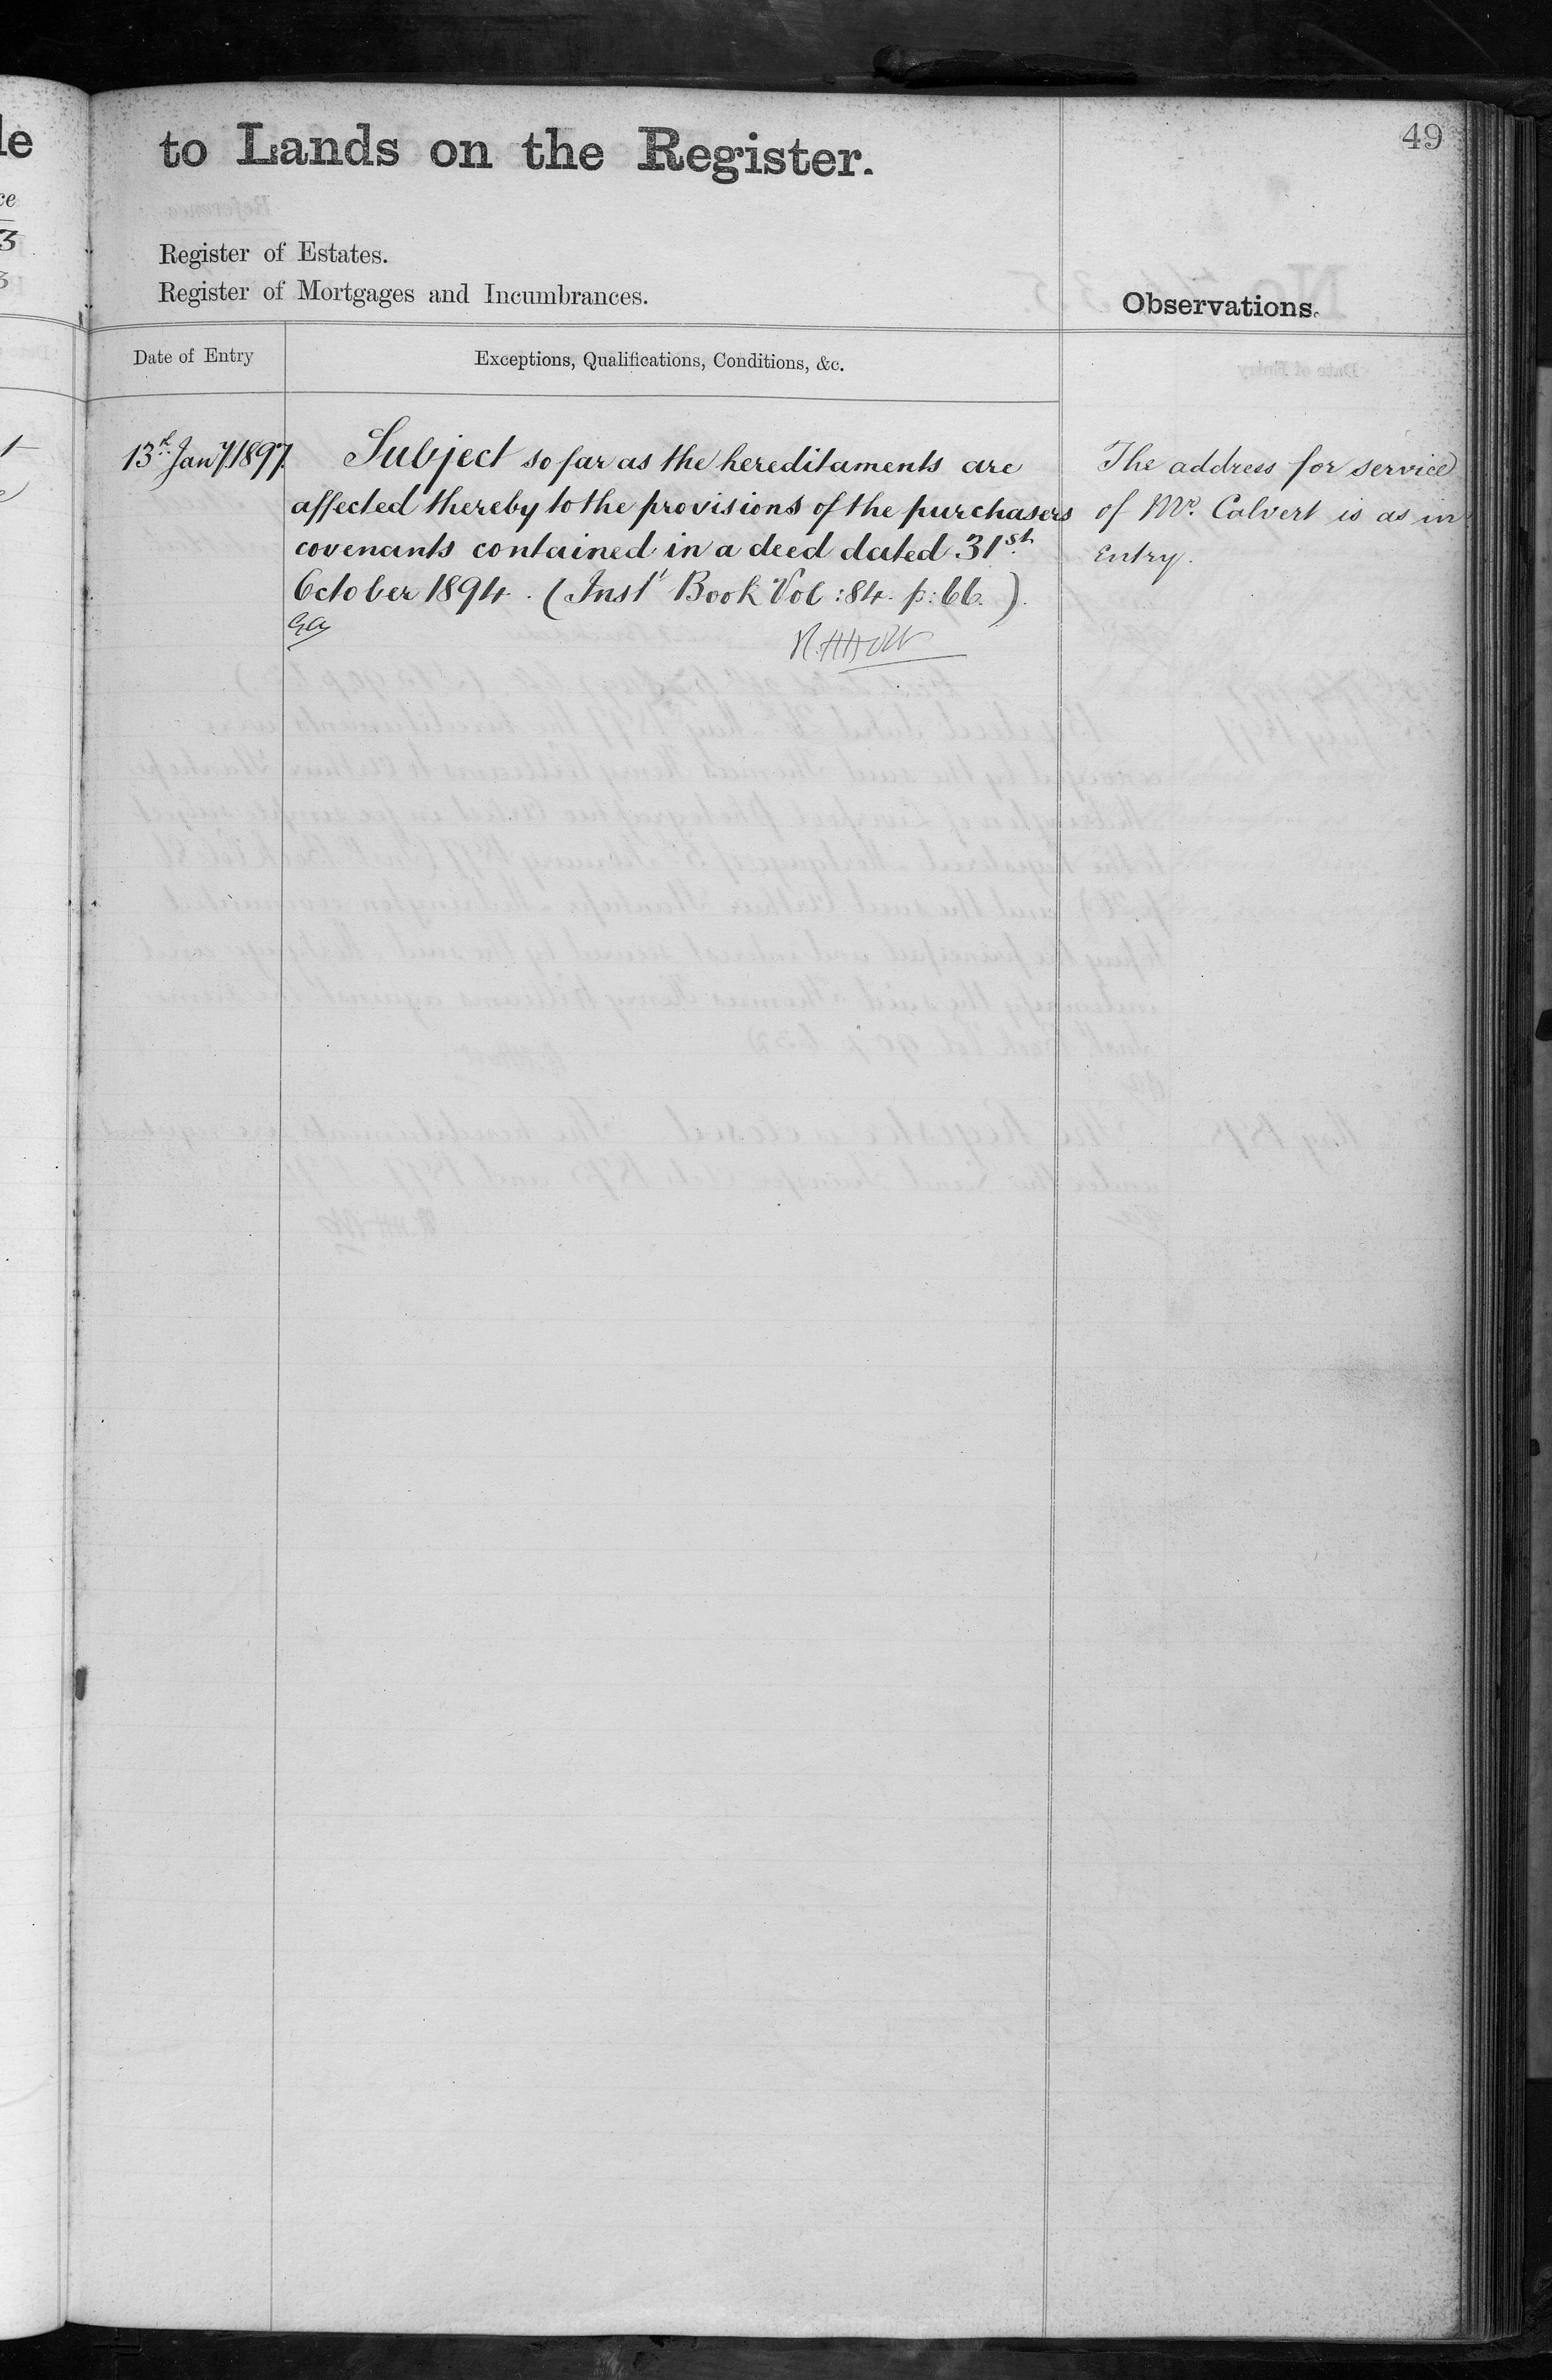 to Lands on the Register.
49
Register of Estates.
Register of Mortgages and Incumbrances.
Observations.
Date of Entry
Exceptions, Qualifications, Conditions, &c.
13th Jany 1897.
Subject so far as the hereditaments are
affected thereby to the provisions of the purchasers
covenants contained in a deed dated 31st
October 1894. (Inst' Book Vol: 84. p: 66.).
The address for service
of Mr. Calvert is as in
Entry.